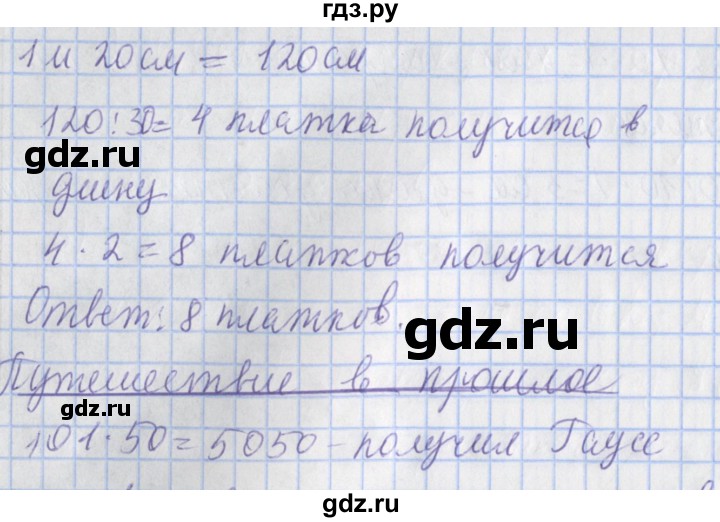 гдз.ру
1 м 20 см = 120 см
120:30= 4 платка получится в
gdz.ru
длину
4 · 2 = 8 платков получится
gdz.ru
Ответ: 8 платков.
gdz.ru
Путешествие в прошлое
gdz.ru
101·50=5050 - получил Гаусс
gdz.ru